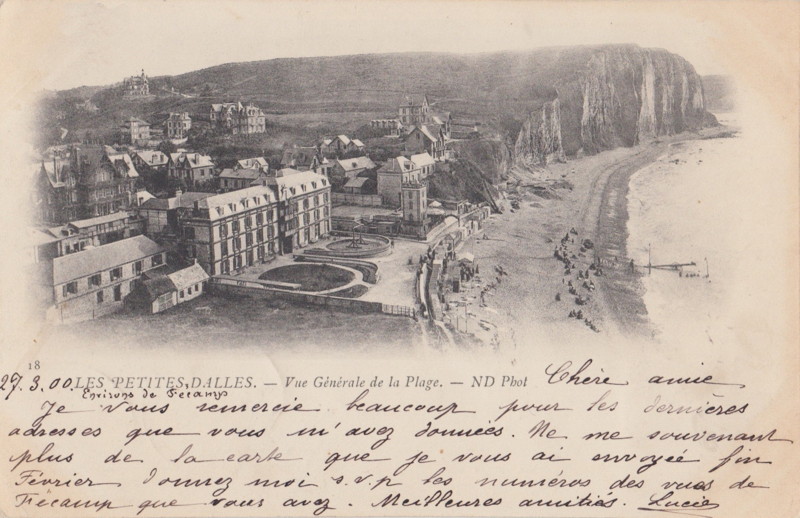 18
27.3.00. LES PETITES DALLES. — Vue Générale de la Plage. — ND Phot Chère amie
Environs de Fécamp
Je vous remercie beaucoup pour les dernières
adresses que vous m'avez données. Ne me souvenant
plus de la carte que je vous ai envoyée fin
Février donnez moi s.v.p les numéros des vues de
Fécamp que vous avez. Meilleures amitiés. Lucie